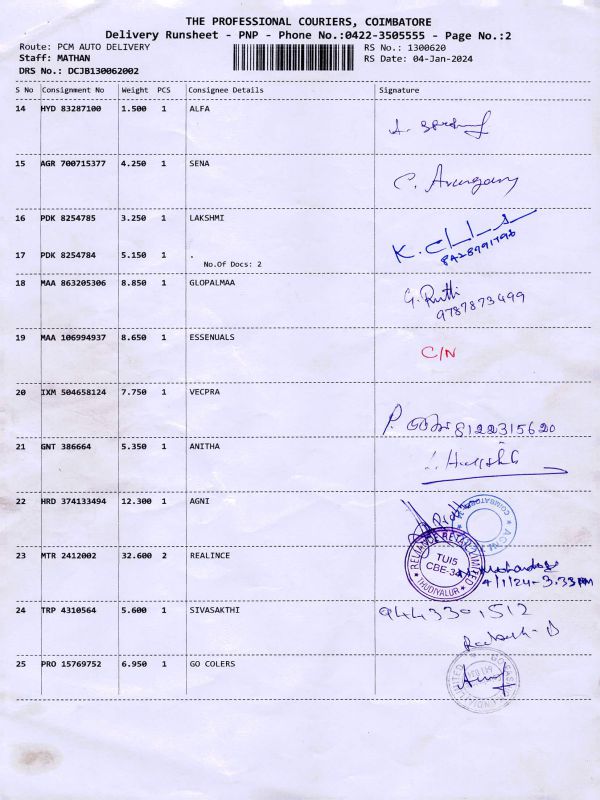 THE PROFESSIONAL COURIERS, COIMBATORE
Delivery Runsheet - PNP - Phone No.:0422-3505555 - Page No.:2
Route: PCM AUTO DELIVERY RS No.: 1300620
Staff: MATHAN RS Date: 04-Jan-2024
DRS No.: DCJB130062002
S No Consignment No Weight PCS Consignee Details Signature
14 HYD 83287100 1.500 1 ALFA
15 AGR 700715377 4.250 1 SENA
C.
16 PDK 8254785 3.250 1 LAKSHMI
K.
17 PDK 8254784 5.150 1 .
No.Of Docs: 2
18 MAA 863205306 8.850 1 GLOPALMAA
G. Ruthi
9787873499
19 MAA 106994937 8.650 1 ESSENUALS
C/N
20 IXM 504658124 7.750 1 VECPRA
P. 8122315620
21 GNT 386664 5.350 1 ANITHA
22 HRD 374133494 12.300 1 AGNI
COIMBATORE
AGNI
23 MTR 2412002 32.600 2 REALINCE
RELIANCE RETAIL LIMITED
TUI5
CBE-34
THUDIYALUR
4/1/24-3.33PM
24 TRP 4310564 5.600 1 SIVASAKTHI
9443301512
25 PRO 15769752 6.950 1 GO COLERS